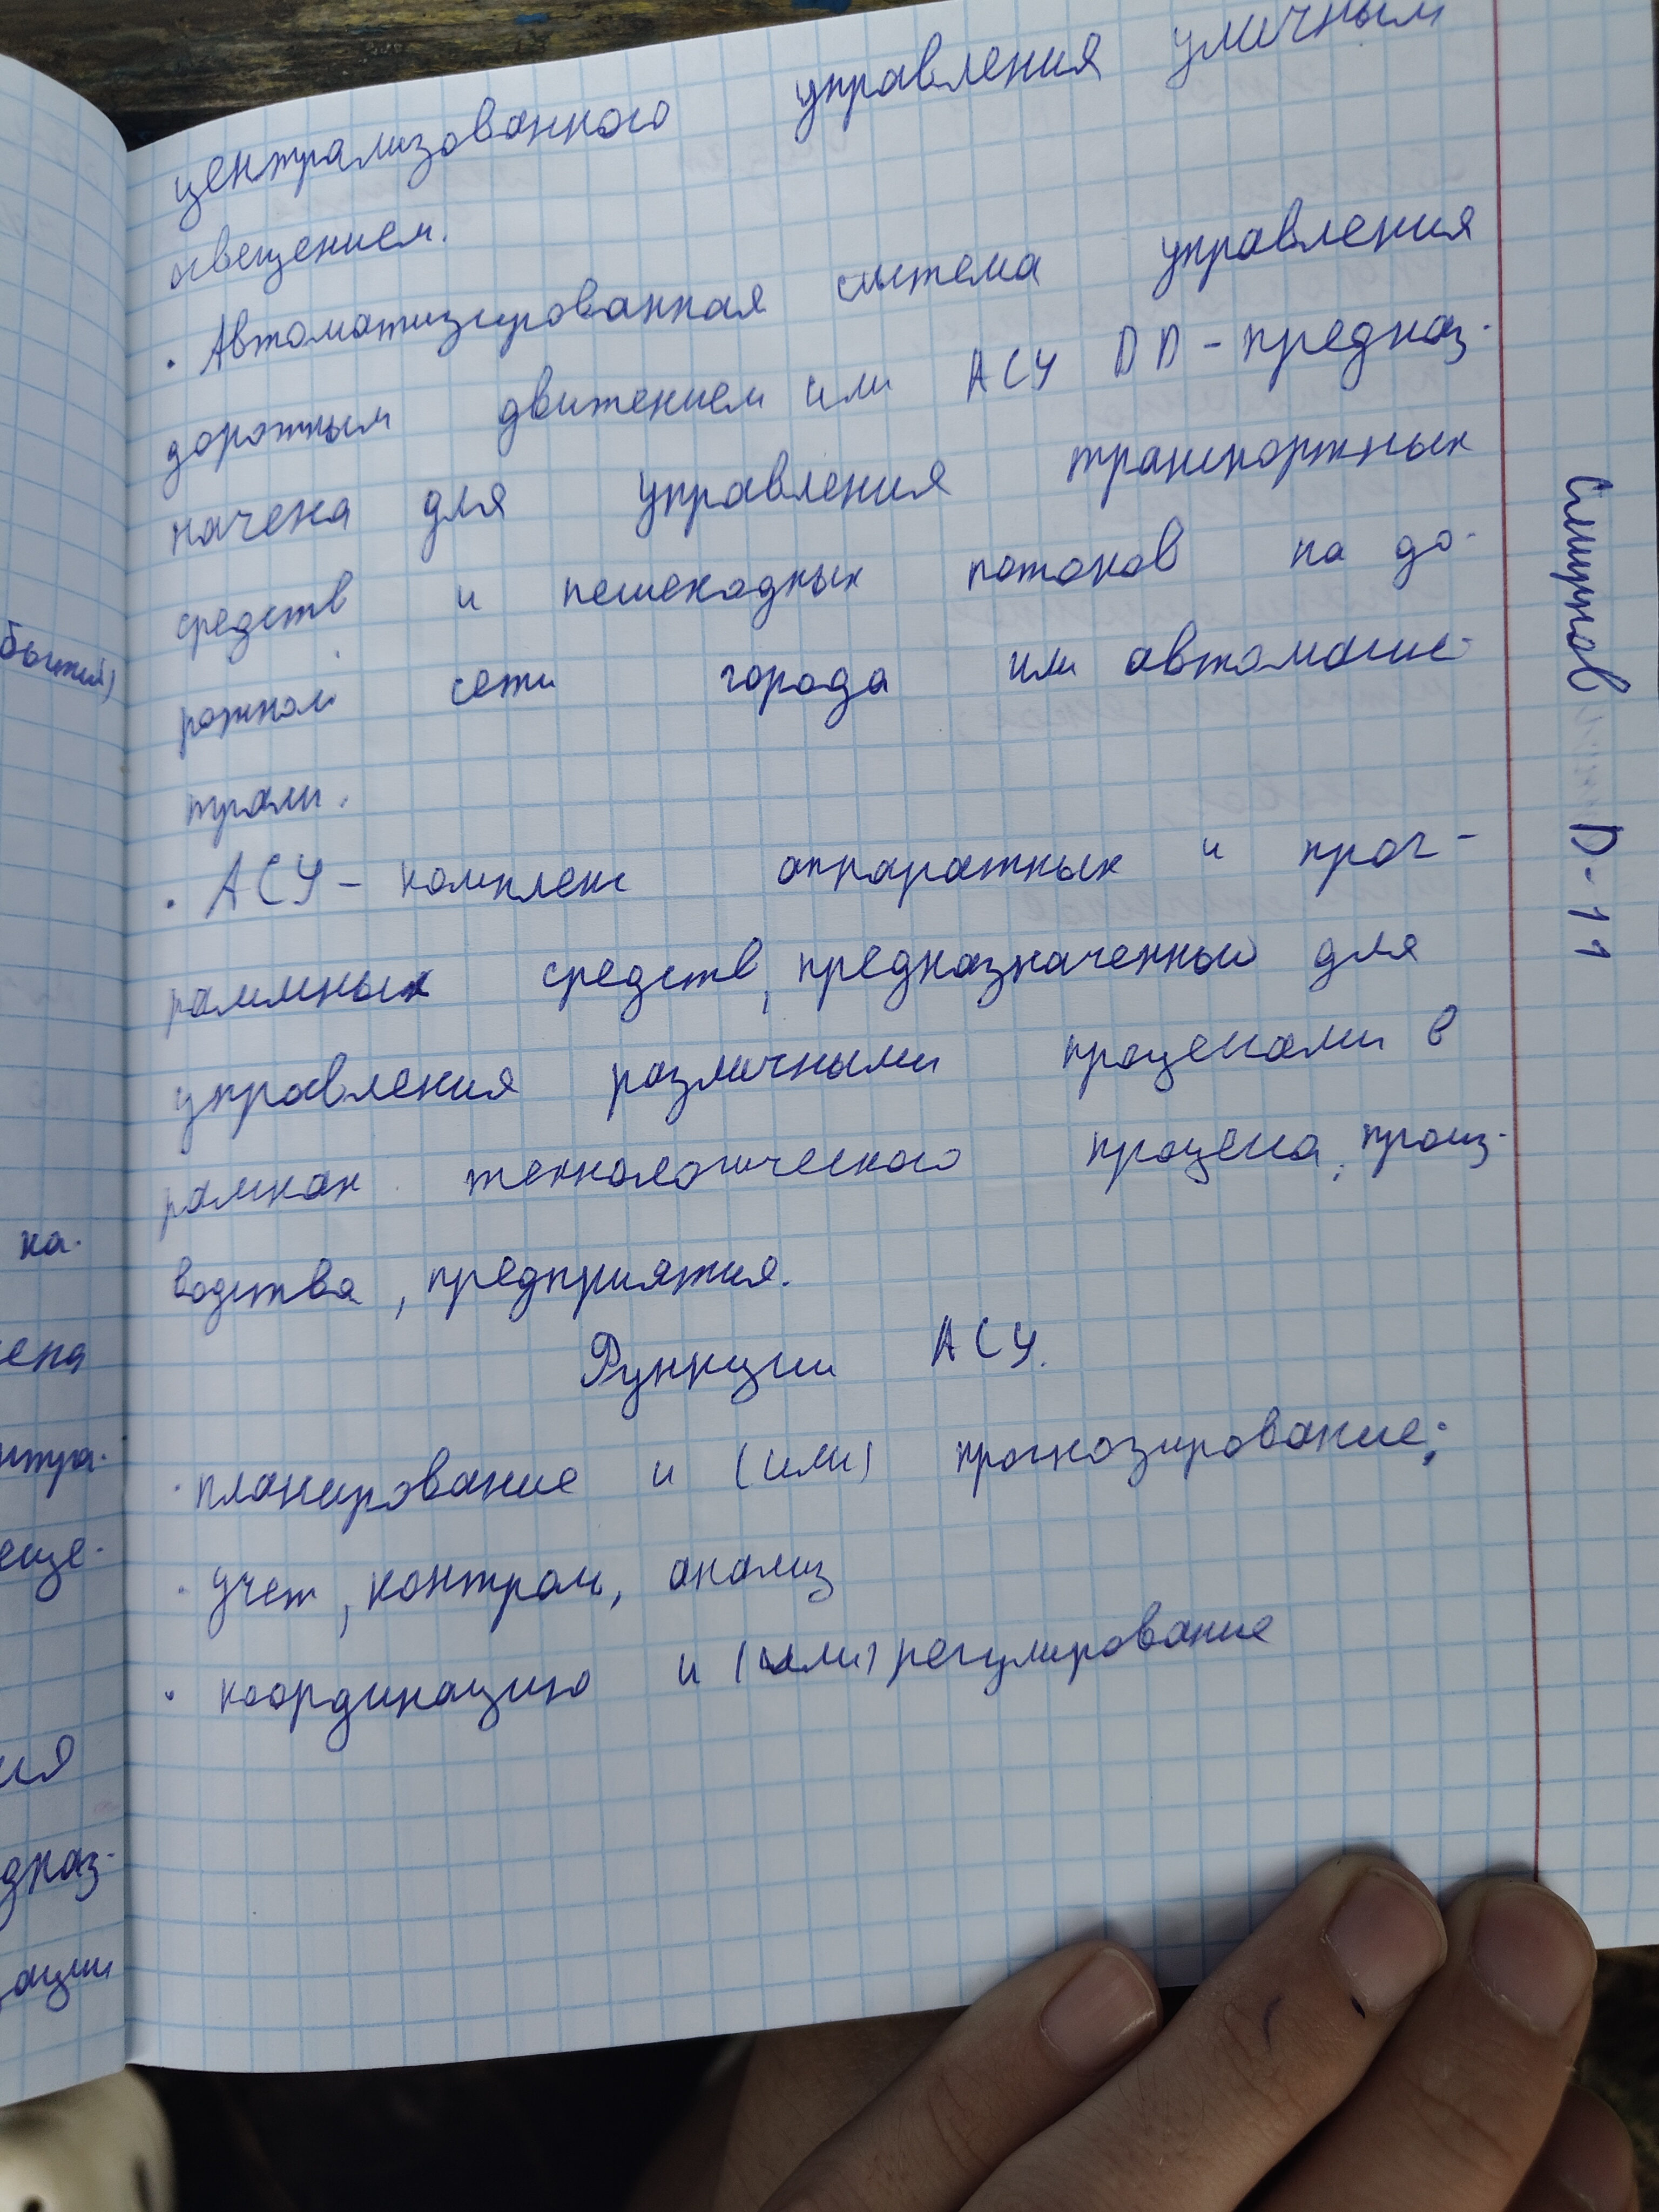 централизованного управления уличным
освещением.
· Автоматизированная система управления
дорожным движением или АСУ DD - предназ-
начена для управления транспортных
средств и пешеходных потоков на до-
рожной сети города или автомагис-
трали.
· АСУ - комплекс аппаратных и прог-
раммных средств, предназначенный для
управления различными процессами в
рамках технологического процесса, произ-
водства, предприятия.
Функции АСУ.
· планирование и (или) прогнозирование;
· учет, контроль, анализ
· координацию и (или) регулирование
Смирнов D-11
бытия)
ка-
ена
нтра-
еще-
ия
дназ-
ации